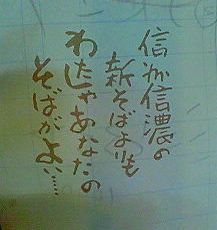 信州信濃の
新そばよりも
わたしゃあなたの
そばがよい……